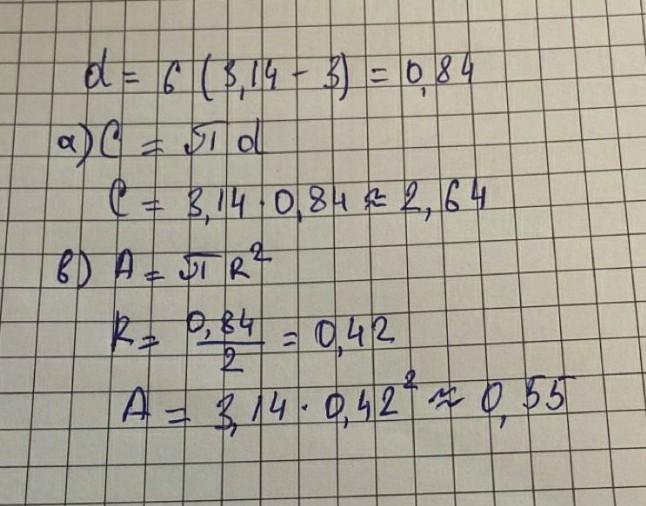 d = 6 (3,14 - 3) = 0,84
a) C = π d
C = 3,14 · 0,84 ≈ 2,64
в) A = π R²
R = 0,84/2 = 0,42
A = 3,14 · 0,42² ≈ 0,55